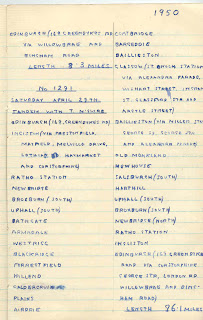 1950
EDINBURGH (158, GREENDYKES RD
VIA WILLOWBRAE AND
DURHAM ROAD
LENGTH 83 MILES
No 1291
SATURDAY APRIL 29TH.
TANDEM WITH
EDINBURGH (158, GREENDYKES RD)
INGLISTON (VIA PRESTONFIELD,
MAYFIELD, MELVILLE DRIVE,
LOTHIAN RD HAYMARKET
AND CORSTORPHINE)
RATHO STATION
NEWBRIDGE
BROXBURN (SOUTH)
UPHALL (SOUTH)
BATHGATE
ARMADALE
WESTRIGG
BLACKRIDGE
FORRESTFIELD
HILLEND
CALDERCRUIX
PLAINS
AIRDRIE
COATBRIDGE
BARGEDDIE
BAILLIESTON
GLASGOW (ST ENOCH STATION
VIA ALEXANDRA PARADE,
ST GLASSFORD ST AND
ARGYLE STREET)
BAILLIESTON (VIA MILLER ST
GEORGE SQ, GEORGE ST
AND ALEXANDRA PARADE)
OLD MONKLAND
NEWHOUSE
SALSBURGH (SOUTH)
HARTHILL
UPHALL (SOUTH)
BROXBURN (SOUTH)
NEWBRIDGE (NORTH)
RATHO STATION
INGLISTON
EDINBURGH (158 GREENDYKES
ROAD VIA CORSTORPHINE
GEORGE STR, LONDON RD.
WILLOWBRAE AND DURHAM
ROAD)
LENGTH 96.1 MILES